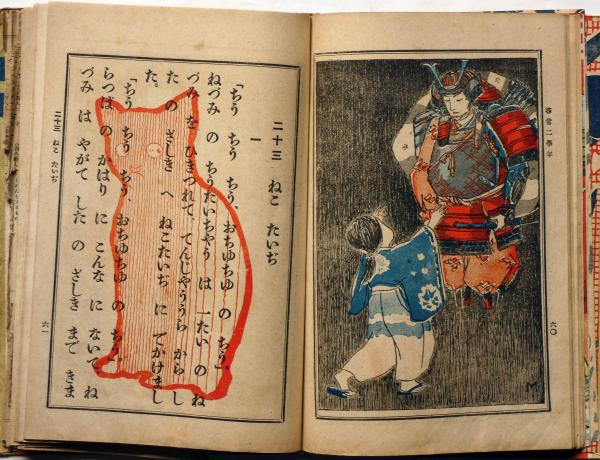 尋常二學年
六〇
M
二十三 ねこ たいぢ
一
「ちう ちう ちう、おちゆちゆ の ちう。
ねづみ の ちうたいちやう は 一たい の ね
づみ を ひきつれて、てんじやううら から し
た の ざしき へ ねこたいぢ に でかけまし
た。
「ちう ちう ちう、おちゆちゆ の ちう」
らつぱ の かはり に こんな に ないて ね
づみ は やがて した の ざしき まで きま
二十三 ねこ たいぢ
六一